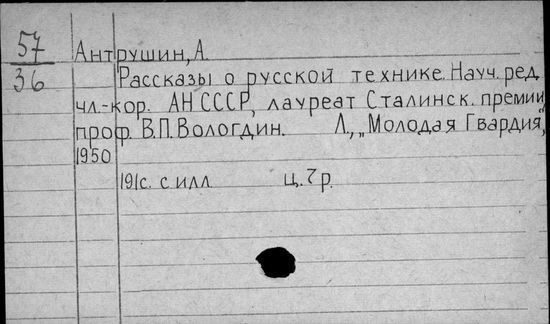 57
36
Антрушин, А.
Рассказы о русской технике. Науч. ред.
чл.-кор. АН СССР, лауреат Сталинск. премии
проф. В.П. Вологдин. Л., „Молодая Гвардия",
1950
191с. с илл. ц. 7 р.